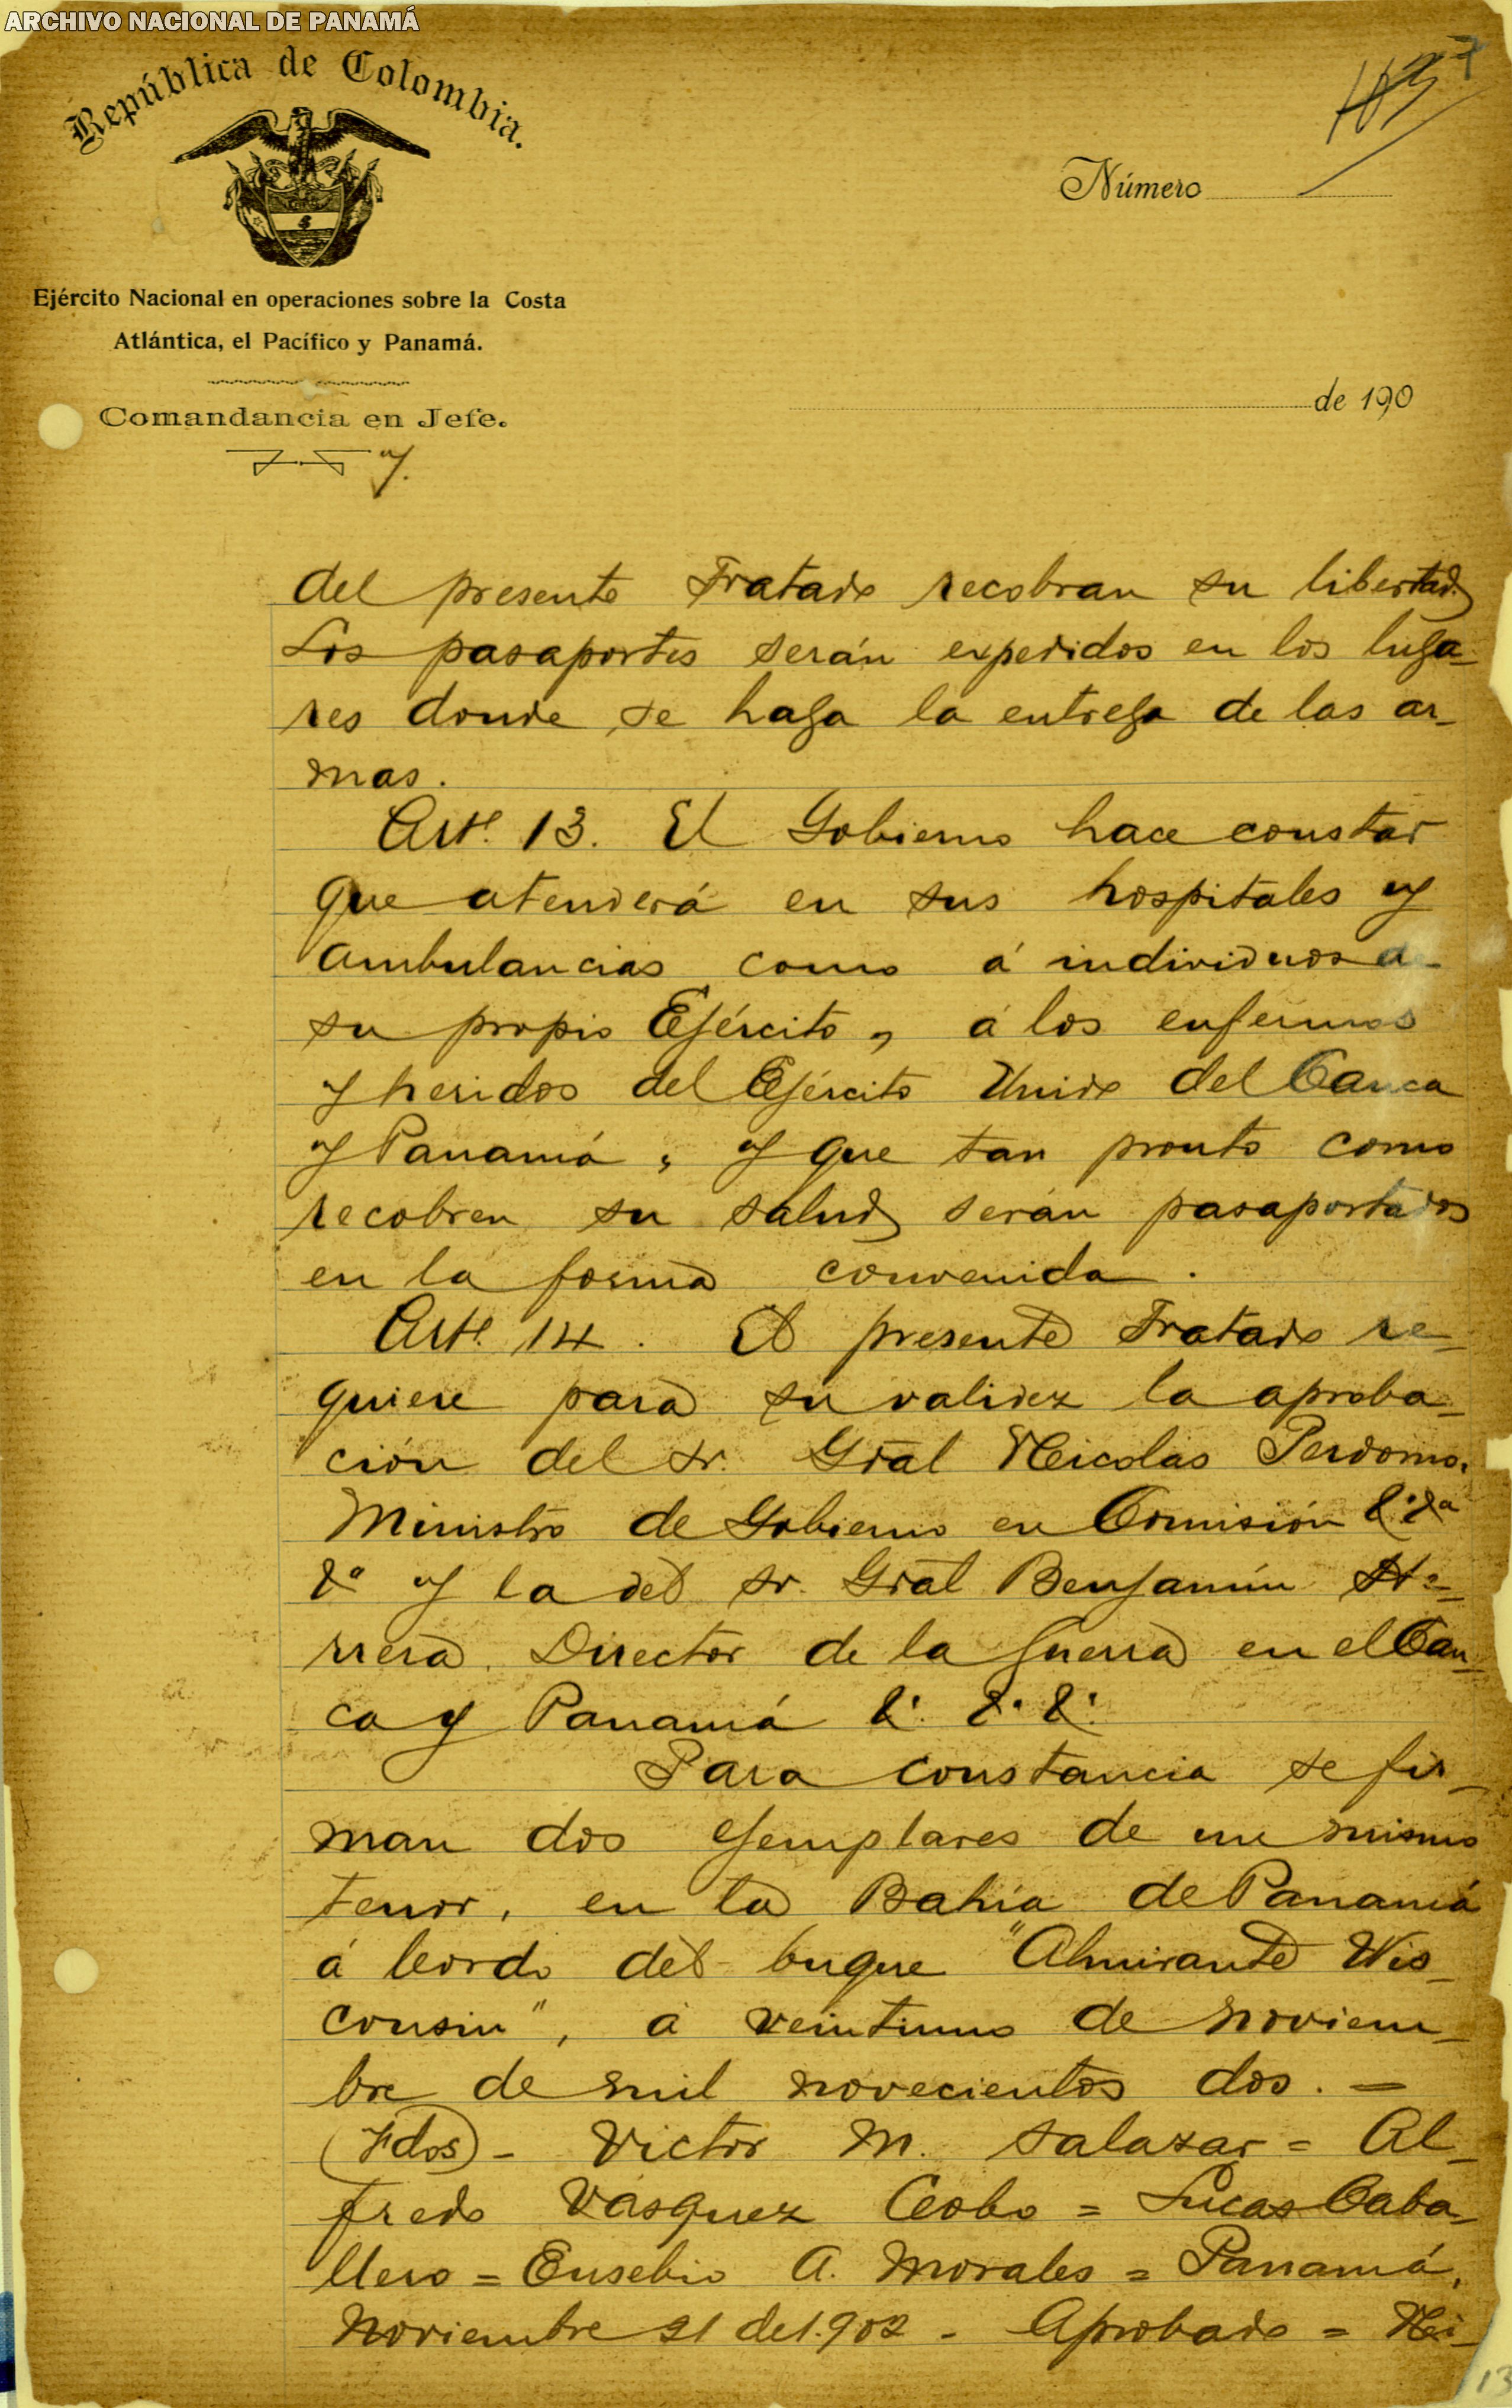 ARCHIVO NACIONAL DE PANAMÁ
República de Colombia.
Número
Ejército Nacional en operaciones sobre la Costa
Atlántica, el Pacífico y Panamá.
de 190
Comandancia en Jefe.
del presente Tratado recobran su libertad.
Los pasaportes serán expedidos en los luga-
res donde se haga la entrega de las ar-
mas.
Artº. 13. El Gobierno hace constar
que atenderá en sus hospitales y
ambulancias como á individuos de
su propio Ejército, á los enfermos
y heridos del Ejército Unido del Cauca
y Panamá, y que tan pronto como
recobren su salud serán pasaportados
en la forma convenida.
Artº. 14. El presente Tratado re-
quiere para su validez la aproba-
ción del Sr. Gral Nicolas Perdomo,
Ministro de Gobierno en Comisión &. &ª
&ª y la del Sr. Gral Benjamín He-
rrera, Director de la Guerra en el Cau-
ca y Panamá &. &. &.
Para constancia se fir-
man dos ejemplares de un mismo
tenor, en la Bahía de Panamá
á bordo del buque "Almirante Wis-
consin", á veintiuno de noviem-
bre de mil novecientos dos. =
(Fdos) - Victor M. Salazar = Al-
fredo Vásquez Cobo = Lucas Caba-
llero = Eusebio A. Morales = Panamá,
Noviembre 21 de 1.902 - Aprobado = Ni-
13